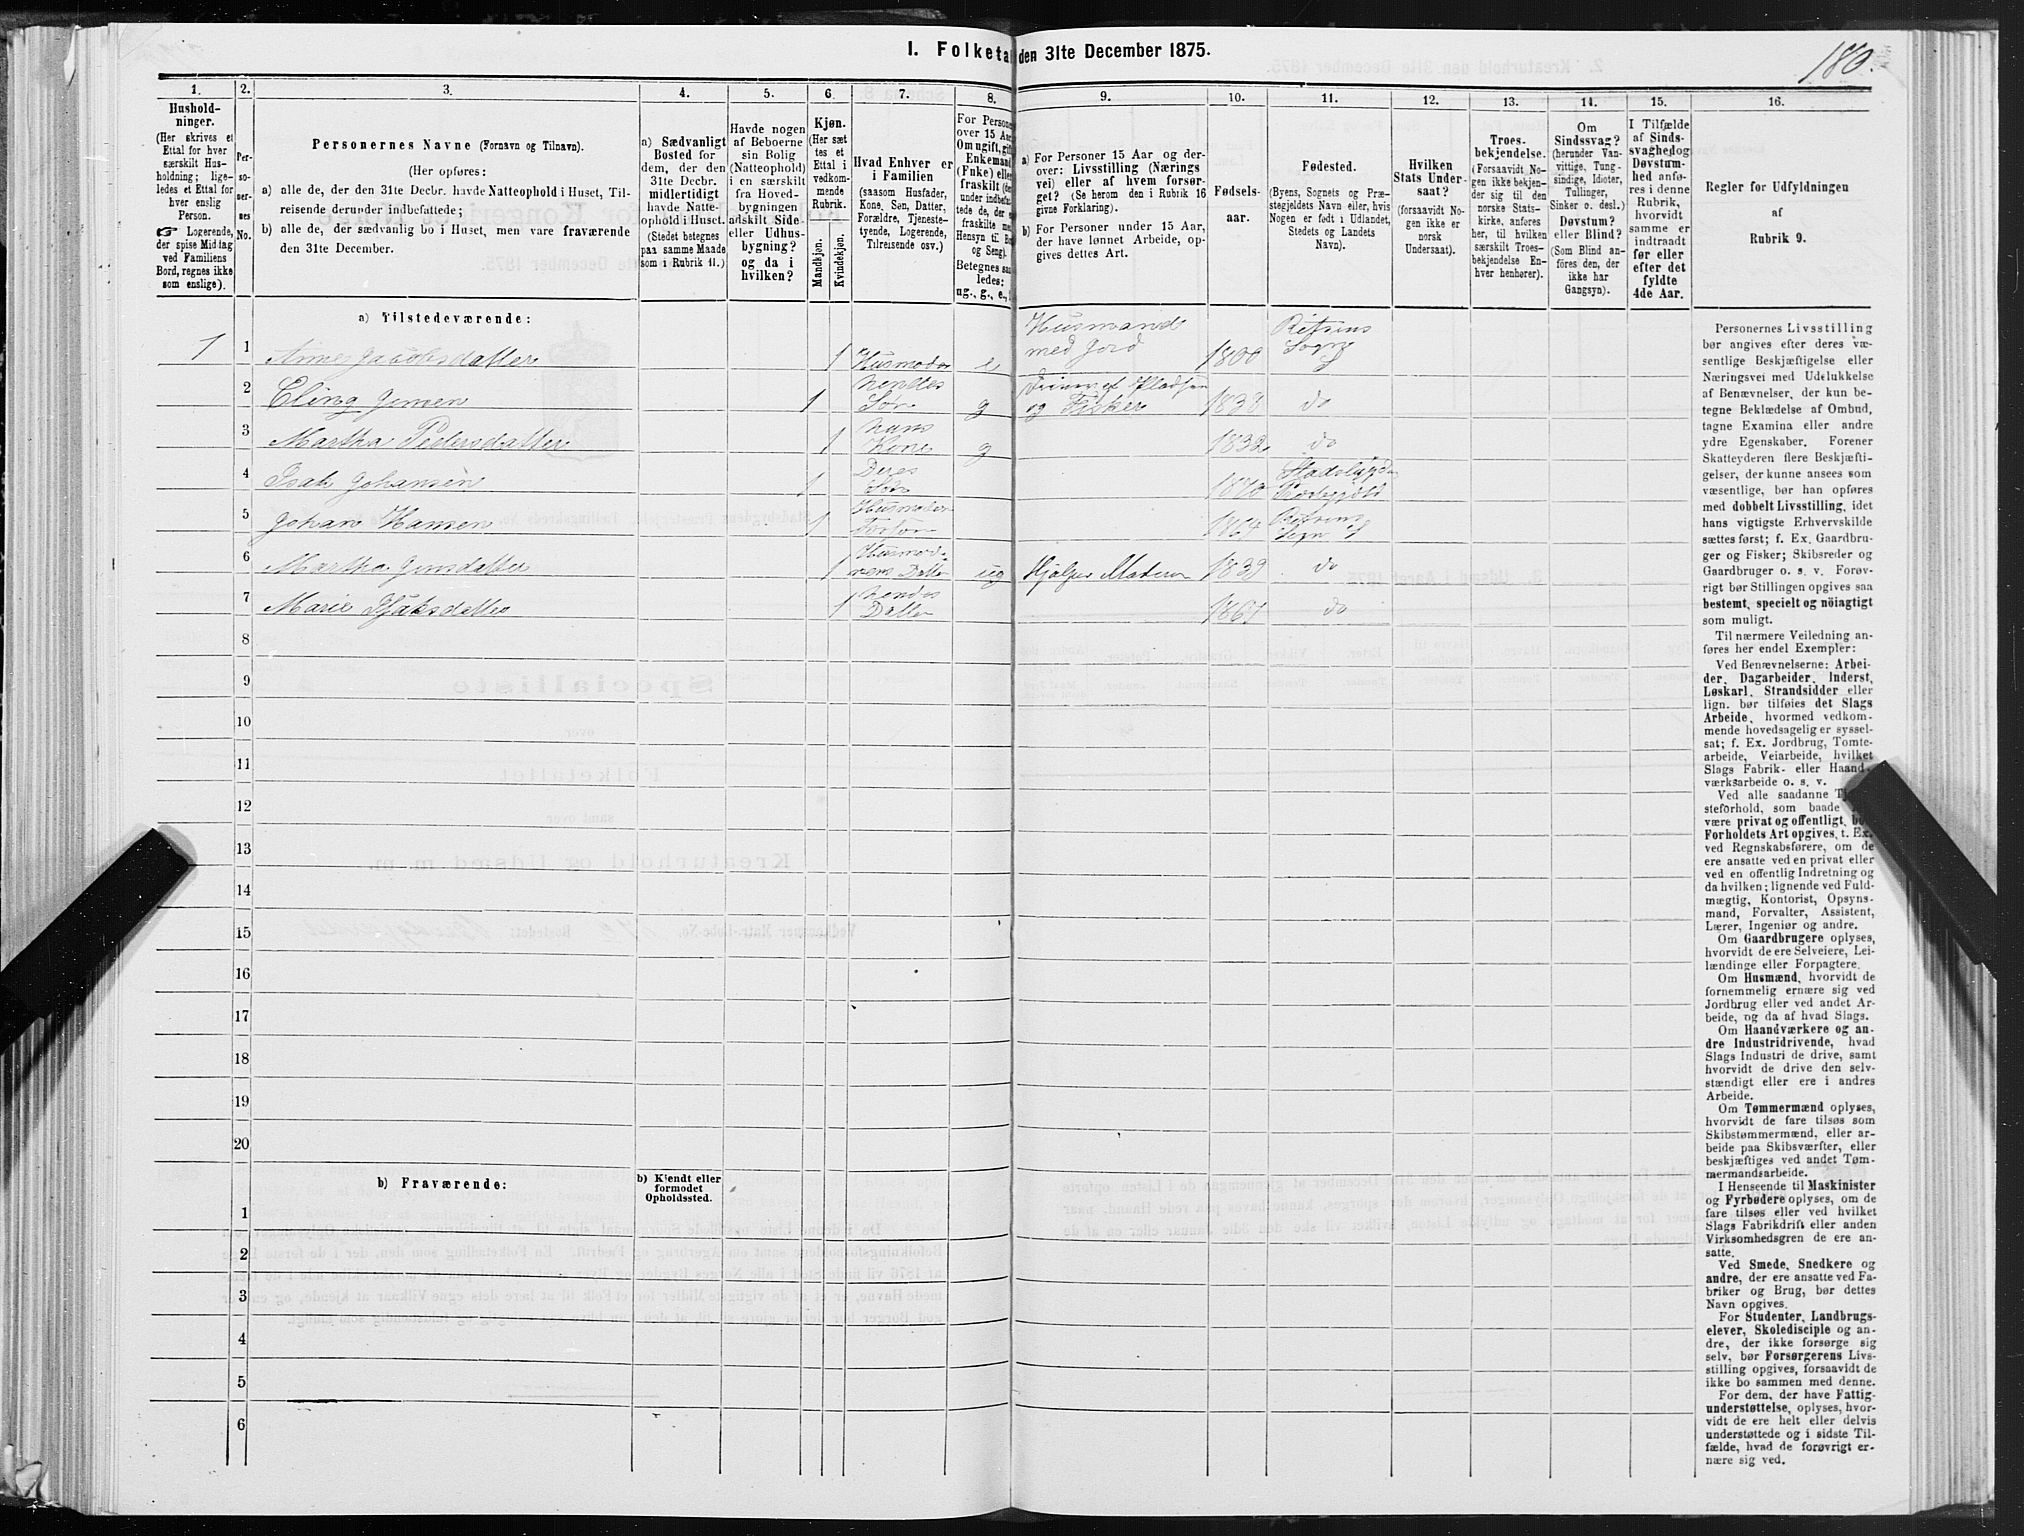 I. Folketal den 31te December 1875.
180.
1.
Hushold-
ninger.
(Her skrives et
Ettal for hver
særskilt Hus-
holdning; lige-
ledes et Ettal for
hver enslig
Person.
Logerende,
der spise Middag
ved Familiens
Bord, regnes ikke
som enslige).
2.
Per-
so-
ner-
nes
No.
3.
Personernes Navne (Fornavn og Tilnavn).
(Her opføres:
a) alle de, der den 31te Decbr. havde Natteophold i Huset, Til-
reisende derunder indbefattede;
b) alle de, der sædvanlig bo i Huset, men vare fraværende
den 31te December.
4.
a) Sædvanligt
Bosted for
dem, der den
31te Decbr.
midlertidigt
havde Natte-
ophold i Huset.
(Stedet betegnes
paa samme Maade
som i Rubrik 11.)
5.
Havde nogen
af Beboerne
sin Bolig
(Natteophold)
i en særskilt
fra Hoved-
bygningen
adskilt Side-
eller Udhus-
bygning?
og da i
hvilken?
6.
Kjøn.
(Her sæt
tes et
Ettal i
vedkom-
mende
Rubrik.
Mandkjøn.
Kvindekjøn.
7.
Hvad Enhver er
i Familien
(saasom Husfader,
Kone, Søn, Datter,
Forældre, Tjeneste-
tyende, Logerende,
Tilreisende osv.)
8.
For Persone
over 15 Aar
Om ugift, gift
Enkemand
(Fuke) eller
fraskilt (de
under indbefat
tede de, der e
fraskilte me
Hensyn til Bo
og Seng).
Betegnes saa
ledes:
ug., g., e.,
9.
a) For Personer 15 Aar og der-
over: Livsstilling (Nærings
vei) eller af hvem forsør-
get? (Se herom den i Rubrik 16
givne Forklaring).
b) For Personer under 15 Aar,
der have lønnet Arbeide, op-
gives dettes Art.
10.
Fødsels-
aar.
11.
Fødested.
(Byens, Sognets og Præ-
stegjeldets Navn eller, hvis
Nogen er født i Udlandet,
Stedets og Landets
Navn).
12.
Hvilken
Stats Under-
saat?
(forsaavidt No-
gen ikke er
norsk
Undersaat).
13.
Troes-
bekjendelse.
(Forsaavidt No-
gen ikke bekjen-
der sig til den
norske Stats-
kirke, anføres
her, til hvilken
særskilt Troes-
bekjendelse En-
hver henhører).
14.
Om
Sindssvag?
(herunder Van-
vittige, Tung-
sindige, Idioter,
Tullinger,
Sinker o. desl.)
Døvstum?
eller Blind?
(Som Blind an-
føres den, der
ikke har
Gangsyn).
15.
I Tilfælde
af Sinds-
svaghed og
Døvstum-
hed anfø-
res i denne
Rubrik,
hvorvidt
samme er
indtraadt
før eller
efter det
fyldte
4de Aar.
16.
Regler for Udfyldningen
af
Rubrik 9.
a) Tilstedeværende:
1 1 Anne Jacobsdatter 1 Husmoder e Husmand med Jord 1800 Retsins Sogn
2 Eling Jensen 1 hendes Søn g og Fisker 1838 do
3 Martha Pedersdatter 1 hans Kone g 1832 do
4 Isak Johansen 1 Deres Søn 1870 Stadsbygden
5 Johan Hansen 1 1864 Retsins Sogn
6 Martha Jensdatter 1 Husmoderens Datter ug Hjelper Moderen 1839 do
7 Marie 1 hendes Datter 1867 do
8
9
10
11
12
13
14
15
16
17
18
19
20
b) Fraværende:
b) Kjendt eller
formodet
Opholdssted.
1
2
3
4
5
6
Personernes Livsstilling
bør angives efter deres væ-
sentlige Beskjæftigelse eller
Næringsvei med Udelukkelse
af Benævnelser, der kun be-
tegne Beklædelse af Ombud,
tagne Examina eller andre
ydre Egenskaber. Forener
Skatteyderen flere Beskjæfti-
gelser, der kunne ansees som
væsentlige, bør han opføres
med dobbelt Livsstilling, idet
hans vigtigste Erhvervskilde
sættes først; f. Ex. Gaardbru-
ger og Fisker; Skibsreder og
Gaardbruger o. s. v. Forøv-
rigt bør Stillingen opgives saa
bestemt, specielt og nöiagtigt
som muligt.
Til nærmere Veiledning an-
føres her endel Exempler:
Ved Benævnelserne: Arbei-
der, Dagarbeider, Inderst,
Løskarl, Strandsidder eller
lign. bør tilføies det Slags
Arbeide, hvormed vedkom-
mende hovedsagelig er syssel-
sat; f. Ex. Jordbrug, Tomte-
arbeide, Veiarbeide, hvilket
Slags Fabrik- eller Haand-
værksarbeide o. s. v.
Ved alle saadanne Tj
steforhold, som baade
være privat og offentligt, bø
Forholdets Art opgives, t. Ex.
ved Regnskabsførere, om de
ere ansatte ved en privat eller
ved en offentlig Indretning og
da hvilken; lignende ved Fuld-
mægtig, Kontorist, Opsyns-
mand, Forvalter, Assistent,
Lærer, Ingeniør og andre.
Om Gaardbrugere oplyses,
hvorvidt de ere Selveiere, Lei-
lændinge eller Forpagtere.
Om Husmænd, hvorvidt de
fornemmelig ernære sig ved
Jordbrug eller ved andet Ar-
beide, og da af hvad Slags.
Om Haandværkere og an-
dre Industridrivende, hvad
Slags Industri de drive, samt
hvorvidt de drive den selv-
stændigt eller ere i andres
Arbeide.
Om Tømmermænd oplyses,
hvorvidt de fare tilsøs som
Skibstømmermænd, eller ar-
beide paa Skibsværfter, eller
beskjæftiges ved andet Tøm-
mermandsarbeide.
I Henseende til Maskinister
og Fyrbødere oplyses, om de
fare tilsøs eller ved hvilket
Slags Fabrikdrift eller anden
Virksomhedsgren de ere an-
satte.
Ved Smede, Snedkere og
andre, der ere ansatte ved Fa-
briker og Brug, bør dettes
Navn opgives.
For Studenter, Landbrugs-
elever, Skoledisciple og an-
dre, der ikke forsørge sig
selv, bør Forsørgerens Livs-
stilling opgives, forsaavidt de
ikke bo sammen med denne.
For dem, der have Fattig-
understøttelse, oplyses, hvor-
vidt de ere helt eller delvis
understøttede og i sidste Til-
fælde, hvad de forøvrigt er-
nære sig ved.